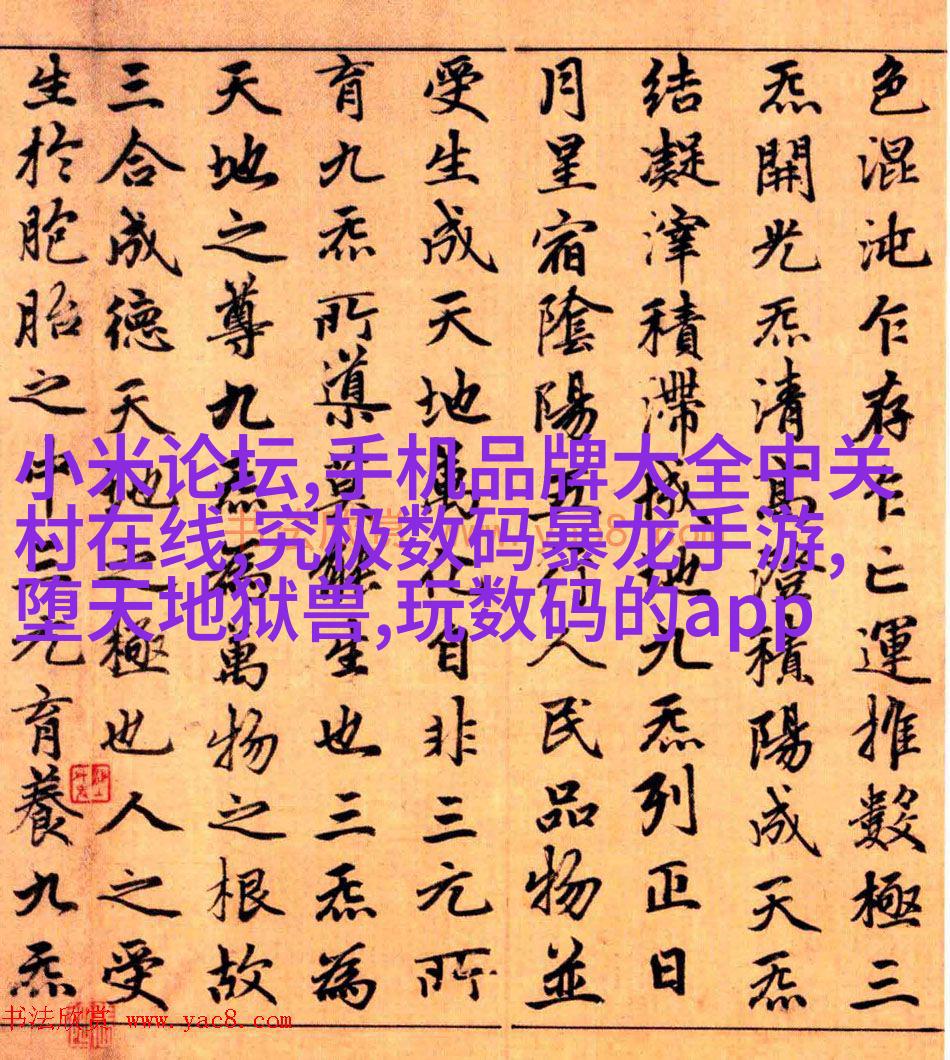 色混沌乍存乍亡運推數極三
炁開光炁清高澄積陽成天炁
結凝滓積滯成地九炁列正日
月星宿陰陽五行人民品物並
受生成天地萬化自非三元所
育九炁所導莫能生也三炁為
天地之尊九炁為萬物之根故
三合成德天地之極也人之受
生於胞胎之中三元育養九炁
小米论坛,手机品牌大全中关
村在线,究极数码暴龙手游,
堕天地狱兽,玩数码的app
书法欣赏 www.yac8.com